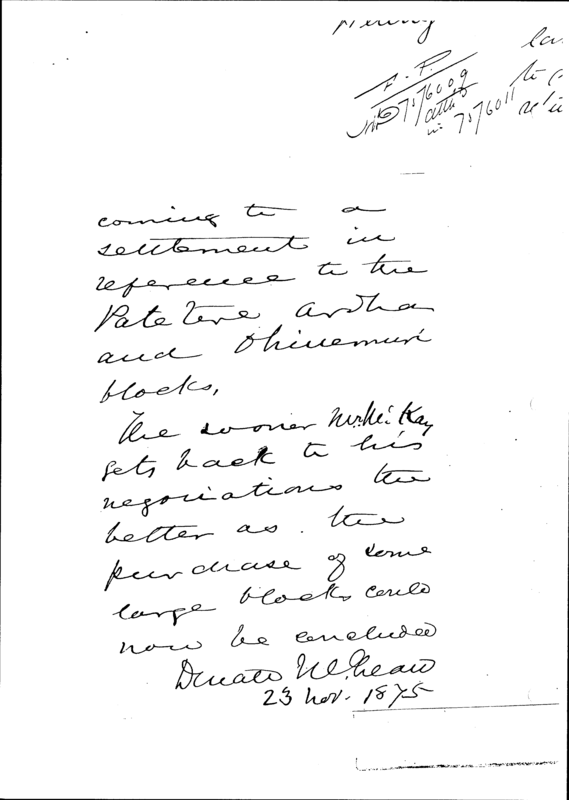 F. P.
7576009
7576011
coming to a
settlement in
reference to the
Patetere Aroha
and Ohinemuri
blocks,
The sooner Mr. McKay
gets back to his
negociations the
better as the
purchase of some
large blocks could
now be concluded
Donald McLean
23 Nov. 1875